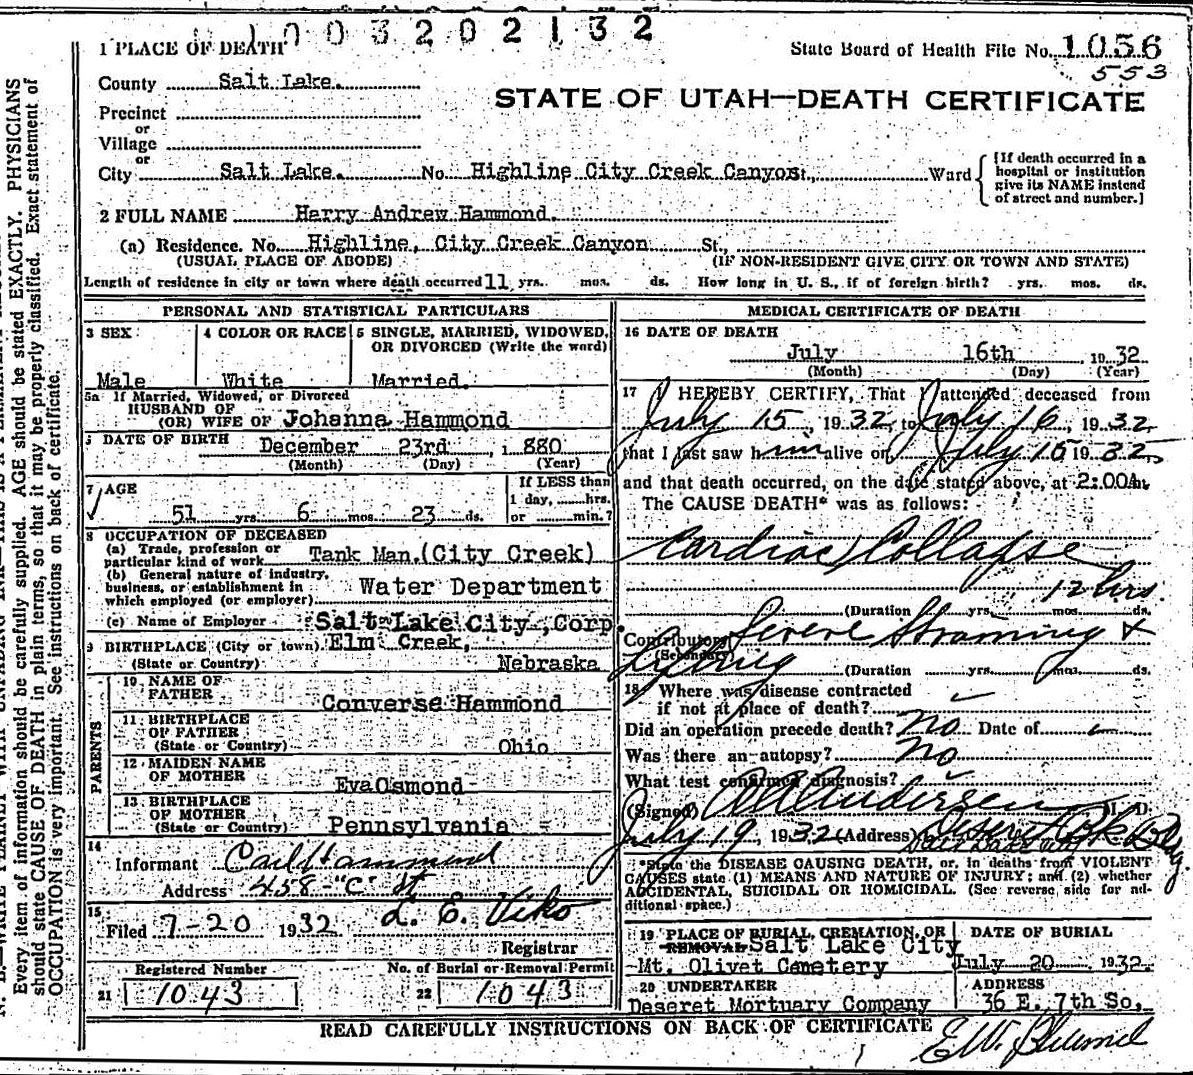 1003202132
1 PLACE OF DEATH
State Board of Health File No. 1056
553
County Salt Lake.
STATE OF UTAH—DEATH CERTIFICATE
Precinct
or
Village
or
City Salt Lake. No. Highline City Creek Canyon St., Ward
[If death occurred in a
hospital or institution
give its NAME instead
of street and number.]
2 FULL NAME Harry Andrew Hammond.
(a) Residence. No. Highline, City Creek Canyon St.,
(USUAL PLACE OF ABODE) (IF NON-RESIDENT GIVE CITY OR TOWN AND STATE)
Length of residence in city or town where death occurred 11 yrs. mos. ds. How long in U. S., if of foreign birth? yrs. mos. ds.
PERSONAL AND STATISTICAL PARTICULARS
3 SEX
Male
4 COLOR OR RACE
White
5 SINGLE, MARRIED, WIDOWED,
OR DIVORCED (Write the word)
Married.
5a If Married, Widowed, or Divorced
HUSBAND OF
(OR) WIFE OF Johanna Hammond
6 DATE OF BIRTH December 23rd, 1880
(Month) (Day) (Year)
7 AGE
51 yrs. 6 mos. 23 ds.
If LESS than
1 day, hrs.
or min.?
8 OCCUPATION OF DECEASED
(a) Trade, profession or
particular kind of work Tank Man. (City Creek)
(b) General nature of industry,
business, or establishment in
which employed (or employer) Water Department
(c) Name of Employer Salt Lake City, Corp.
9 BIRTHPLACE (City or town) Elm Creek,
(State or Country) Nebraska
PARENTS
10 NAME OF
FATHER Converse Hammond
11 BIRTHPLACE
OF FATHER
(State or Country) Ohio
12 MAIDEN NAME
OF MOTHER Eva Osmond
13 BIRTHPLACE
OF MOTHER
(State or Country) Pennsylvania
14
Informant Carl Hammond
Address 458 "C" St
15
Filed 7-20 1932 L. E. Viko
Registrar
Registered Number
21 1043
No. of Burial or Removal Permit
22 1043
MEDICAL CERTIFICATE OF DEATH
16 DATE OF DEATH
July 16th, 1932
(Month) (Day) (Year)
17 I HEREBY CERTIFY, That I attended deceased from
July 15, 1932, to July 16, 1932
that I last saw him alive on July 15 1932,
and that death occurred, on the date stated above, at 2:00A m.
The CAUSE DEATH* was as follows:
Cardiac Collapse
12 hrs.
(Duration yrs. mos. ds.
Contributory Severe Straining &
(Secondary)
Lifting
(Duration yrs. mos. ds.
18 Where was disease contracted
if not at place of death?
Did an operation precede death? no Date of
Was there an autopsy? no
What test confirmed diagnosis?
(Signed) Andersen M. D.
July 19, 1932 (Address) Deseret Bk Bldg.
Salt Lake City
*State the DISEASE CAUSING DEATH, or, in deaths from VIOLENT
CAUSES state (1) MEANS AND NATURE OF INJURY; and (2) whether
ACCIDENTAL, SUICIDAL OR HOMICIDAL. (See reverse side for ad-
ditional space.)
19 PLACE OF BURIAL, CREMATION, OR
REMOVAL Salt Lake City
Mt. Olivet Cemetery
DATE OF BURIAL
July 20 1932.
20 UNDERTAKER
Deseret Mortuary Company
ADDRESS
36 E. 7th So.
READ CAREFULLY INSTRUCTIONS ON BACK OF CERTIFICATE
Every item of information should be carefully supplied. AGE should be stated EXACTLY. PHYSICIANS
should state CAUSE OF DEATH in plain terms, so that it may be properly classified. Exact statement of
OCCUPATION is very important. See instructions on back of certificate.